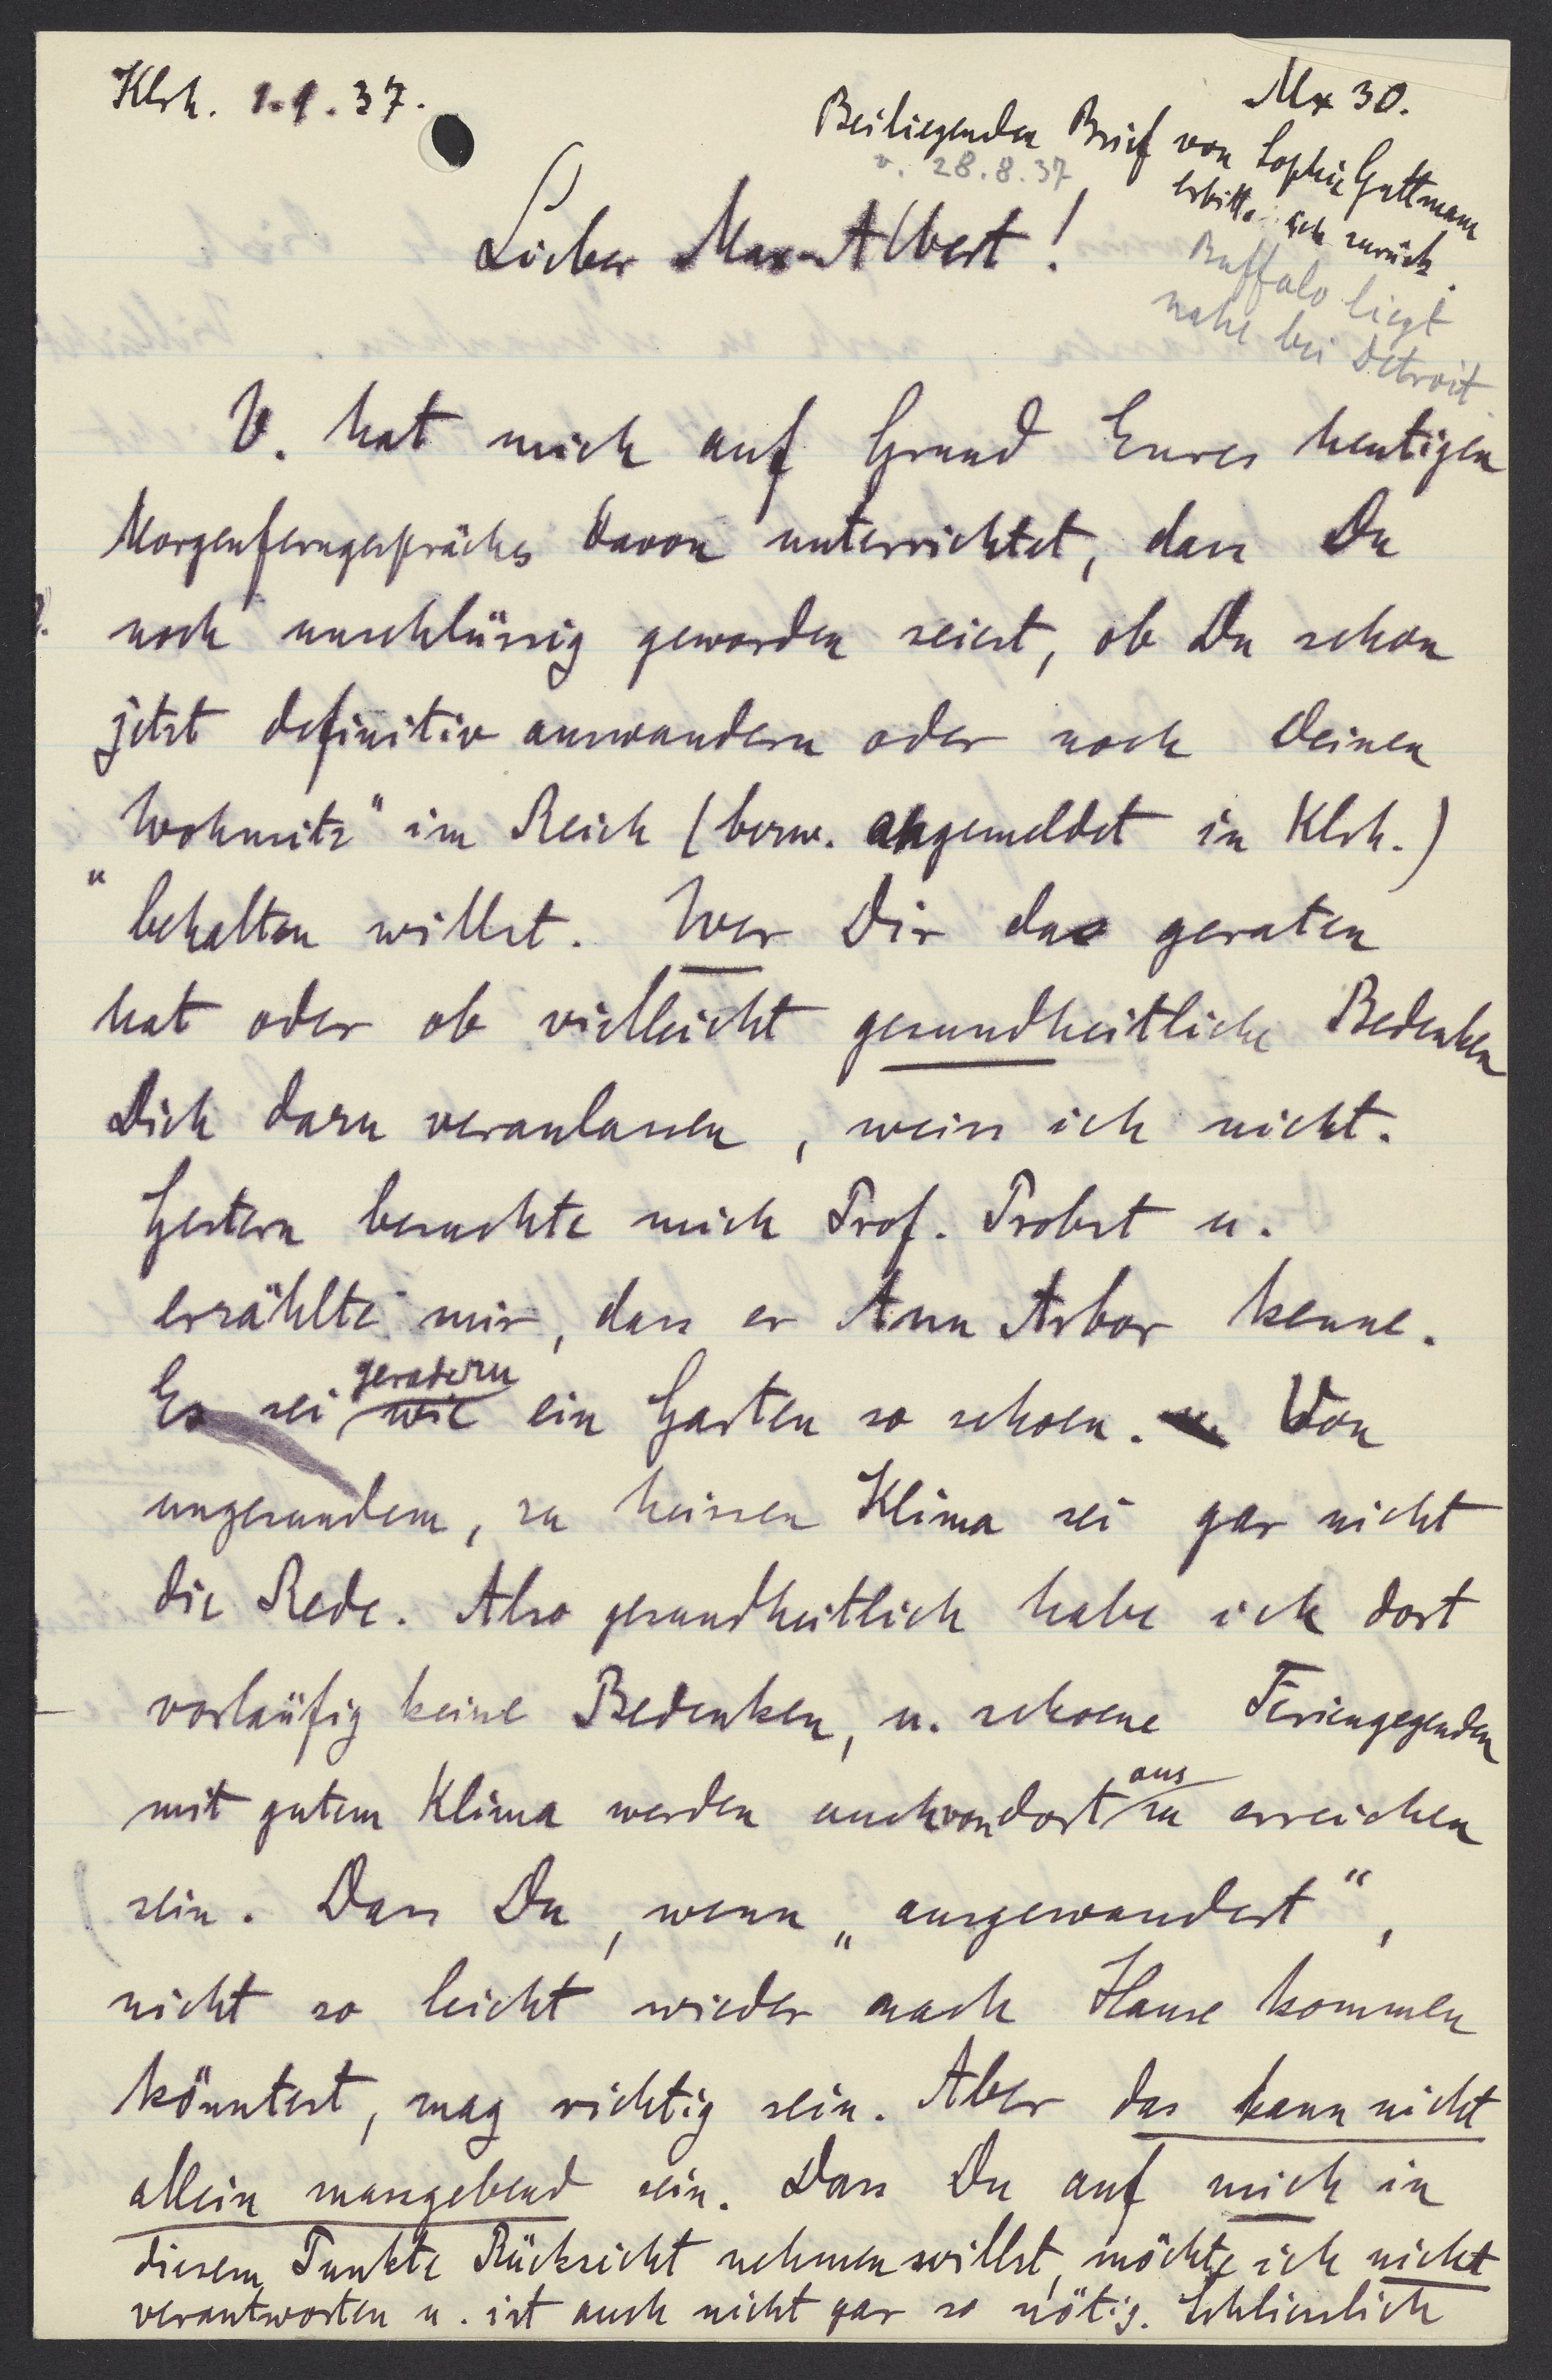 Klsh. 1.9.37.
Mx 30.
Beiliegenden Brief von Sophie Guttmann
v. 28.8.37
erbitte ich zurück.
Buffalo liegt
nahe bei Detroit.
Lieber Max-Albert!
V. hat mich auf Grund Eures heutigen
Morgenferngespräches davon unterrichtet, dass Du
noch unschlüssig geworden seiest, ob Du schon
jetzt definitiv auswandern oder noch Deinen
"Wohnsitz" im Reich (bezw. angemeldet in Klsh.)
behalten willst. Wer Dir das geraten
hat oder ob vielleicht gesundheitliche Bedenken
Dich dazu veranlassen, weiss ich nicht.
Gestern besuchte mich Prof. Probst u.
erzählte mir, dass er Ann Arbor kenne.
geradezu
Es sei wie ein Garten so schoen. u. Von
ungesundem, zu heissen Klima sei gar nicht
die Rede. Also gesundheitlich habe ich dort
vorläufig keine Bedenken, u. schoene Feriengegenden
aus
mit gutem Klima werden auch von dort zu erreichen
sein. Dass Du, wenn „ausgewandert“,
nicht so leicht wieder nach Hause kommen
könntest, mag richtig sein. Aber das kann nicht
allein massgebend sein. Dass Du auf mich in
diesem Punkte Rücksicht nehmen willst, möchte ich nicht
verantworten u. ist auch nicht gar so nötig. Schliesslich